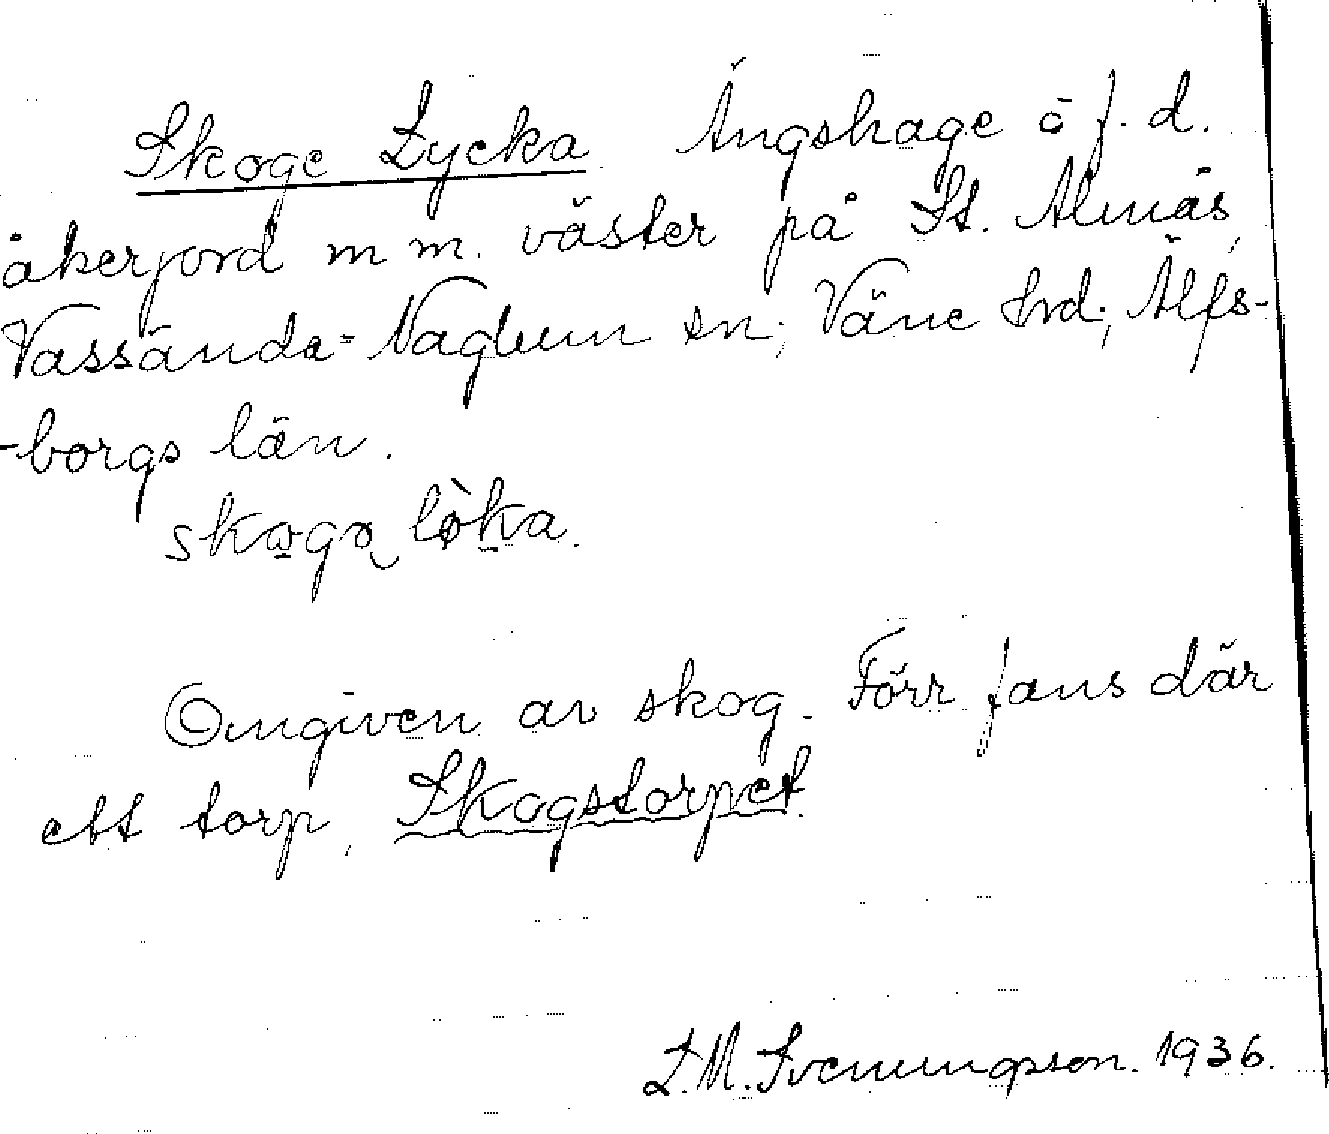 Skoge Lycka Ängshage o f. d.
åkerjord m m. väster på St. Almås,
Vassända-Naglum sn; Väne hrd; Älfs-
-borgs län.
skogə lø̀ka.
Omgiven av skog. Förr fans där
ett torp, Skogstorpet.
L.M. Svenungsson. 1936.